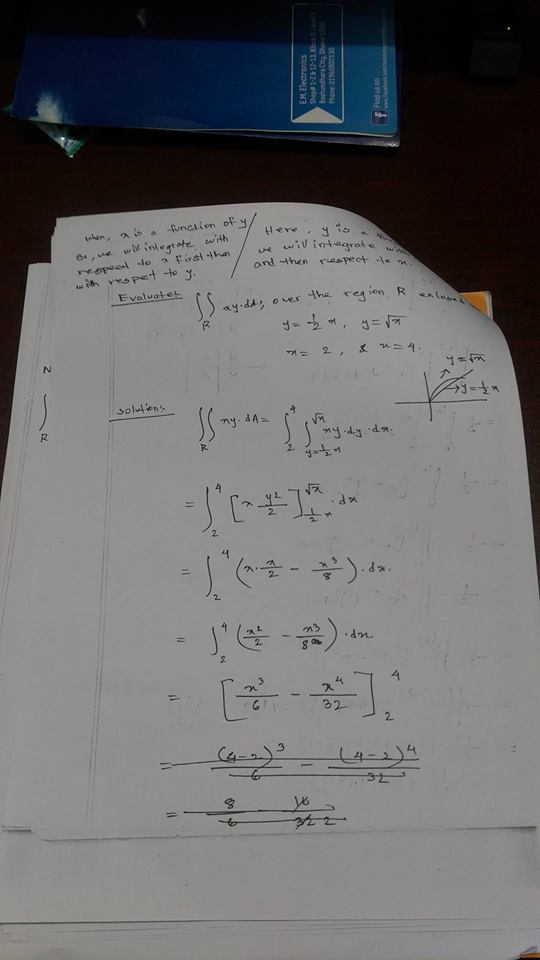 E.M. Electronics
Shop# 1-2 & 12-13, Block D, Level 5
Bashundhara City, Dhaka-1205
Phone: 01960800130
Find us on
when, x is a function of y
so, we will integrate with
respect to x first then
with respect to y.
Here, y is a
we will integrate with
and then respect to x.
Evaluate:
∬_R xy·dA; over the region R enclose
y = 1/2 x, y = √x
x = 2, & x = 4.
y = √x
y = 1/2 x
N
∫_R
Solution:
∬_R xy·dA = ∫_2^4 ∫_{y=1/2 x}^{√x} xy·dy·dx.
= ∫_2^4 [x·y²/2]_{1/2 x}^{√x}·dx
= ∫_2^4 (x·x/2 − x³/8)·dx.
= ∫_2^4 (x²/2 − x³/8)·dx
= [x³/6 − x⁴/32]_2^4
= (4-2)³/6 − (4-2)⁴/32
= 8/6 16/32 2